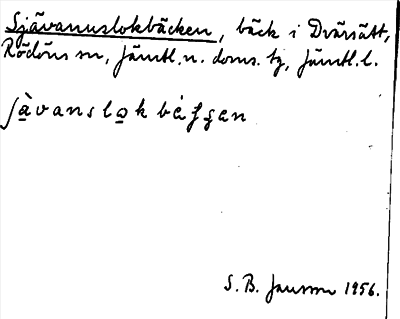 Sjävanuslokbäcken, bäck i Dvärsätt,
Rödöns sn, Jämtl. n. doms. tg, Jämtl. l.
S. B. Jansson 1956.